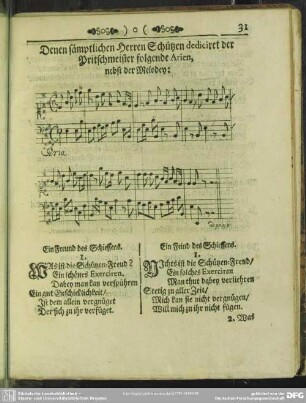 31
Denen sämptlichen Herren Schützen dediciret der
Pritschmeister folgende Arien,
nebst der Melodey:
Aria.
Ein Freund des Schiessens.
1.
WAs ist die Schützen-Freud?
Ein schönes Exerciren,
Dabey man kan verspühren
Ein gut Geschicklichkeit/
Ist dem allein vergnüget
Der sich zu ihr verfüget.
Ein Feind des Schiessens.
1.
NIchts ist die Schützen-Freud/
Ein solches Exerciren
Man thut dabey verliehren
Stetig zu aller Zeit/
Mich kan sie nicht vergnügen/
Will mich zu ihr nicht fügen.
2. Was